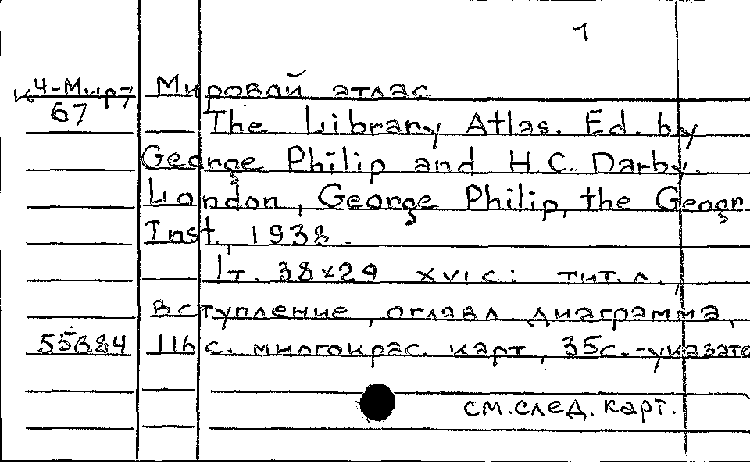 1
Мировой атлас
67
The Library Atlas. Ed. by
George Philip and H.C. Darby.
London, George Philip, the Geogr.
Inst., 1938.
1т. 38×29 XVIс.: тит.л.,
вступление, оглавл диаграмма,
55884 116 с. многокрас. карт, 35с.-указате
см.след. карт.